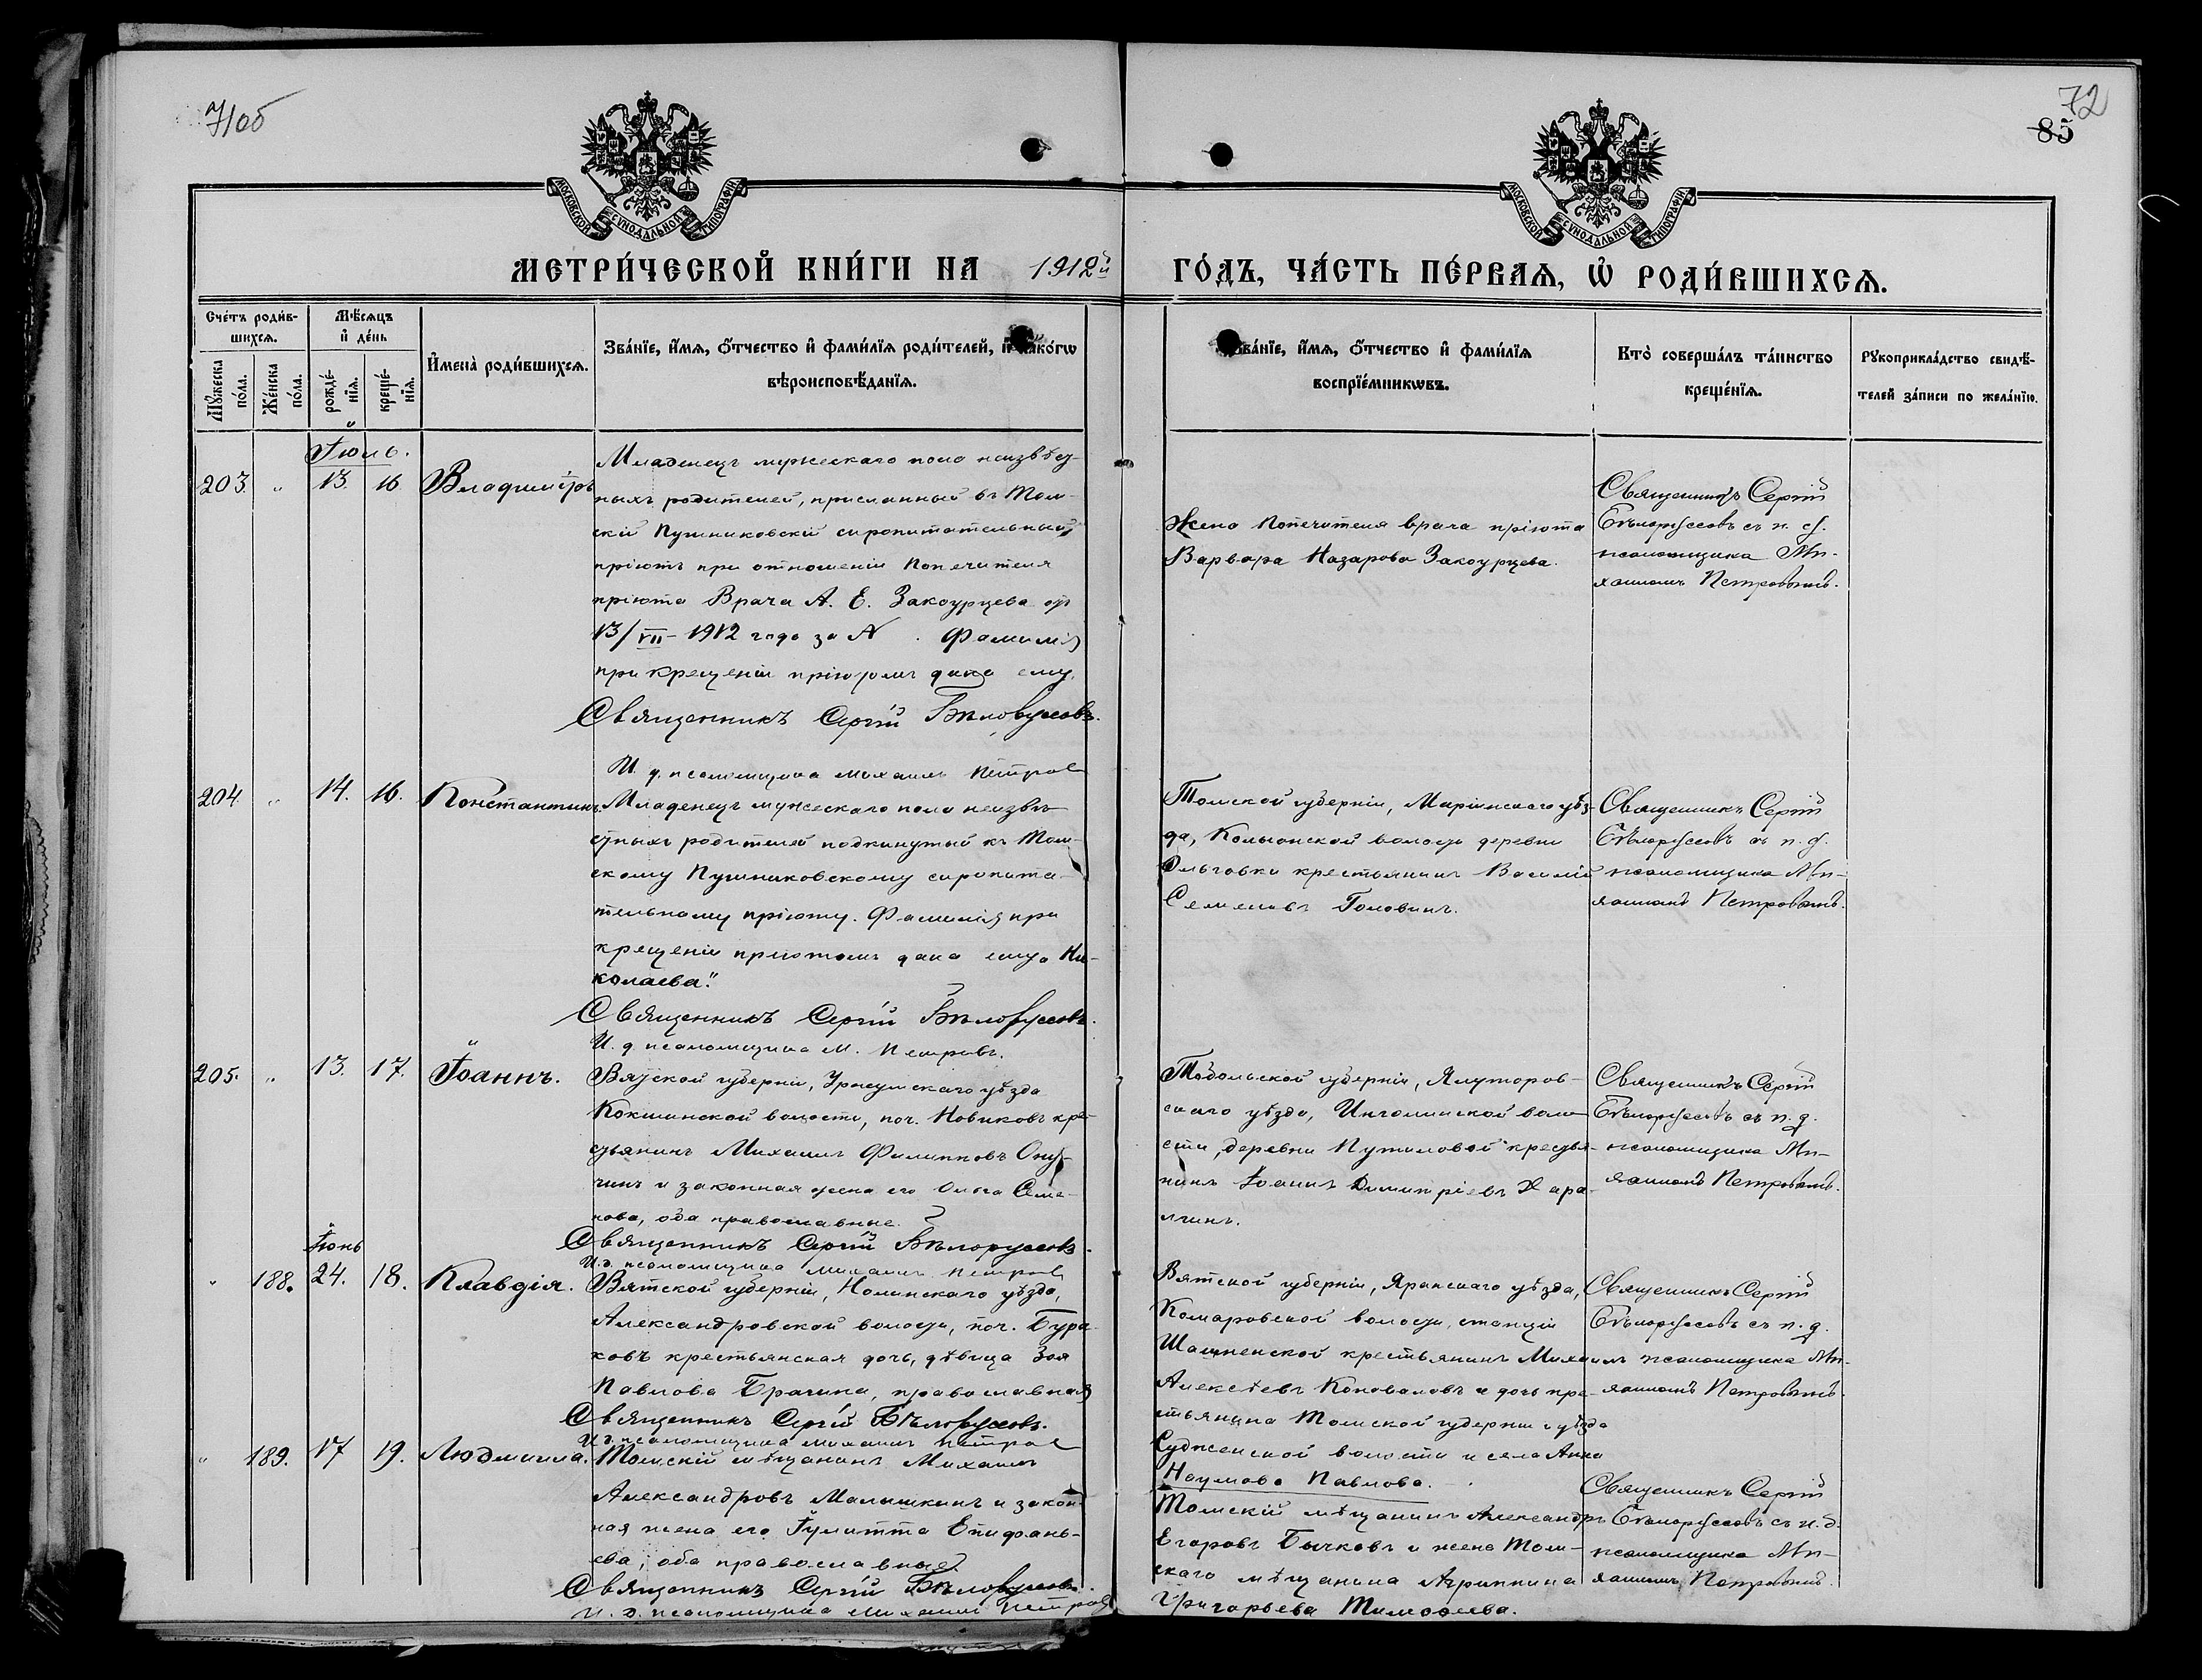 71об
72
85
МОСКОВСКОЙ СѴНОДАЛЬНОЙ ТИПОГРАФІИ
МОСКОВСКОЙ СѴНОДАЛЬНОЙ ТИПОГРАФІИ
МЕТРИ́ЧЕСКОЙ КНИ́ГИ НА 1912й ГО́ДЪ, ЧА́СТЬ ПЕ́РВАѦ, Ѡ҆ РОДИ́ВШИХСѦ.
Сче́тъ роди́в-
шихсѧ.
Мꙋ́жеска по́ла.
Же́нска по́ла.
Мѣ́сѧцъ
и҆ де́нь
рожде́-нїѧ.
креще́-нїѧ.
И҆мена̀ роди́вшихсѧ.
Зва́нїе, и҆́мѧ, ѻ҆́тчество и҆ фами́лїѧ роди́телей, и҆ како́гѡ
вѣроисповѣ́данїѧ.
Зва́нїе, и҆́мѧ, ѻ҆́тчество и҆ фами́лїѧ
воспрїе́мникѡвъ.
Кто̀ соверша́лъ та́инство
креще́нїѧ.
Рꙋкоприкла́дство свидѣ́-
телей за́писи по жела́нїю.
Іюль.
203. " 13. 16 Владиміръ
Младенецъ мужескаго пола неизвѣст-
ныхъ родителей, присланный въ Том-
скій Пушниковскій сиропитательный
пріютъ при отношеніи Попечителя
пріюта Врача А. Е. Закоурцева отъ
13/VII - 1912 года за N . Фамилія
при крещеніи пріютомъ дана ему.
Священникъ Сергій Бѣлоруссовъ.
И. д. псаломщика Михаилъ Петровъ
Жена Попечителя врача пріюта
Варвара Назарова Закоурцева.
Священникъ Сергій
Бѣлоруссовъ съ и. д.
псаломщика Ми-
хаиломъ Петровымъ.
204. " 14. 16. Константинъ.
Младенецъ мужескаго пола неизвѣ-
стныхъ родителей подкинутый къ Том-
скому Пушниковскому сиропита-
тельному пріюту. Фамилія при
крещеніи пріютомъ дана ему „Ни-
колаева".
Священникъ Сергій Бѣлоруссовъ.
И. д. псаломщика М. Петровъ.
Томской губерніи, Маріинскаго уѣз-
да, Колыонской волости деревни
Ольговки крестьянинъ Василій
Семеновъ Головинъ.
Священникъ Сергій
Бѣлоруссовъ съ и. д.
псаломщика Ми-
хаиломъ Петровымъ.
205. " 13. 17. Іоаннъ.
Вятской губерніи, Уржумскаго уѣзда
Кокшинской волости, поч. Новиковъ кре-
стьянинъ Михаилъ Филипповъ Ону-
чинъ и законная жена его Ольга Семе-
нова, оба православные.
Священникъ Сергій Бѣлоруссовъ.
И. д. псаломщика Михаилъ Петровъ
Тобольской губерніи, Ялуторов-
скаго уѣзда, Ингалинской воло-
сти, деревни Путиловой крестья-
нинъ Іоаннъ Димитріевъ
Священникъ Сергій
Бѣлоруссовъ съ и. д.
псаломщика Ми-
хаиломъ Петровымъ.
Іюнь
" 188. 24. 18. Клавдія.
Вятской губерніи, Нолинскаго уѣзда,
Александровской волости, поч. Бура-
ковъ крестьянская дочь, дѣвица Зоя
Павлова Брагина, православная
Священникъ Сергій Бѣлоруссовъ.
И. д. псаломщика Михаилъ Петровъ
Вятской губерніи, Яранскаго уѣзда,
Комаровской волости, станціи
крестьянинъ Михаилъ
Алексѣевъ Коноваловъ и дочь кре-
стьянина Томской губерніи и уѣзда
Судженской волости и села Анна
Наумова Павлова.
Священникъ Сергій
Бѣлоруссовъ съ и. д.
псаломщика Ми-
хаиломъ Петровымъ.
" 189. 17 19. Людмила.
Томскій мѣщанинъ Михаилъ
Александровъ Малышкинъ и закон-
ная жена его Іулитта Епифань-
ева, оба православные.
Священникъ Сергій Бѣлоруссовъ.
И. д. псаломщика Михаилъ Петровъ
Томскій мѣщанинъ Александръ
Егоровъ Бычковъ и жена Том-
скаго мѣщанина Агриппина
Григорьева Тимоѳеева.
Священникъ Сергій
Бѣлоруссовъ съ и. д.
псаломщика Ми-
хаиломъ Петровымъ.